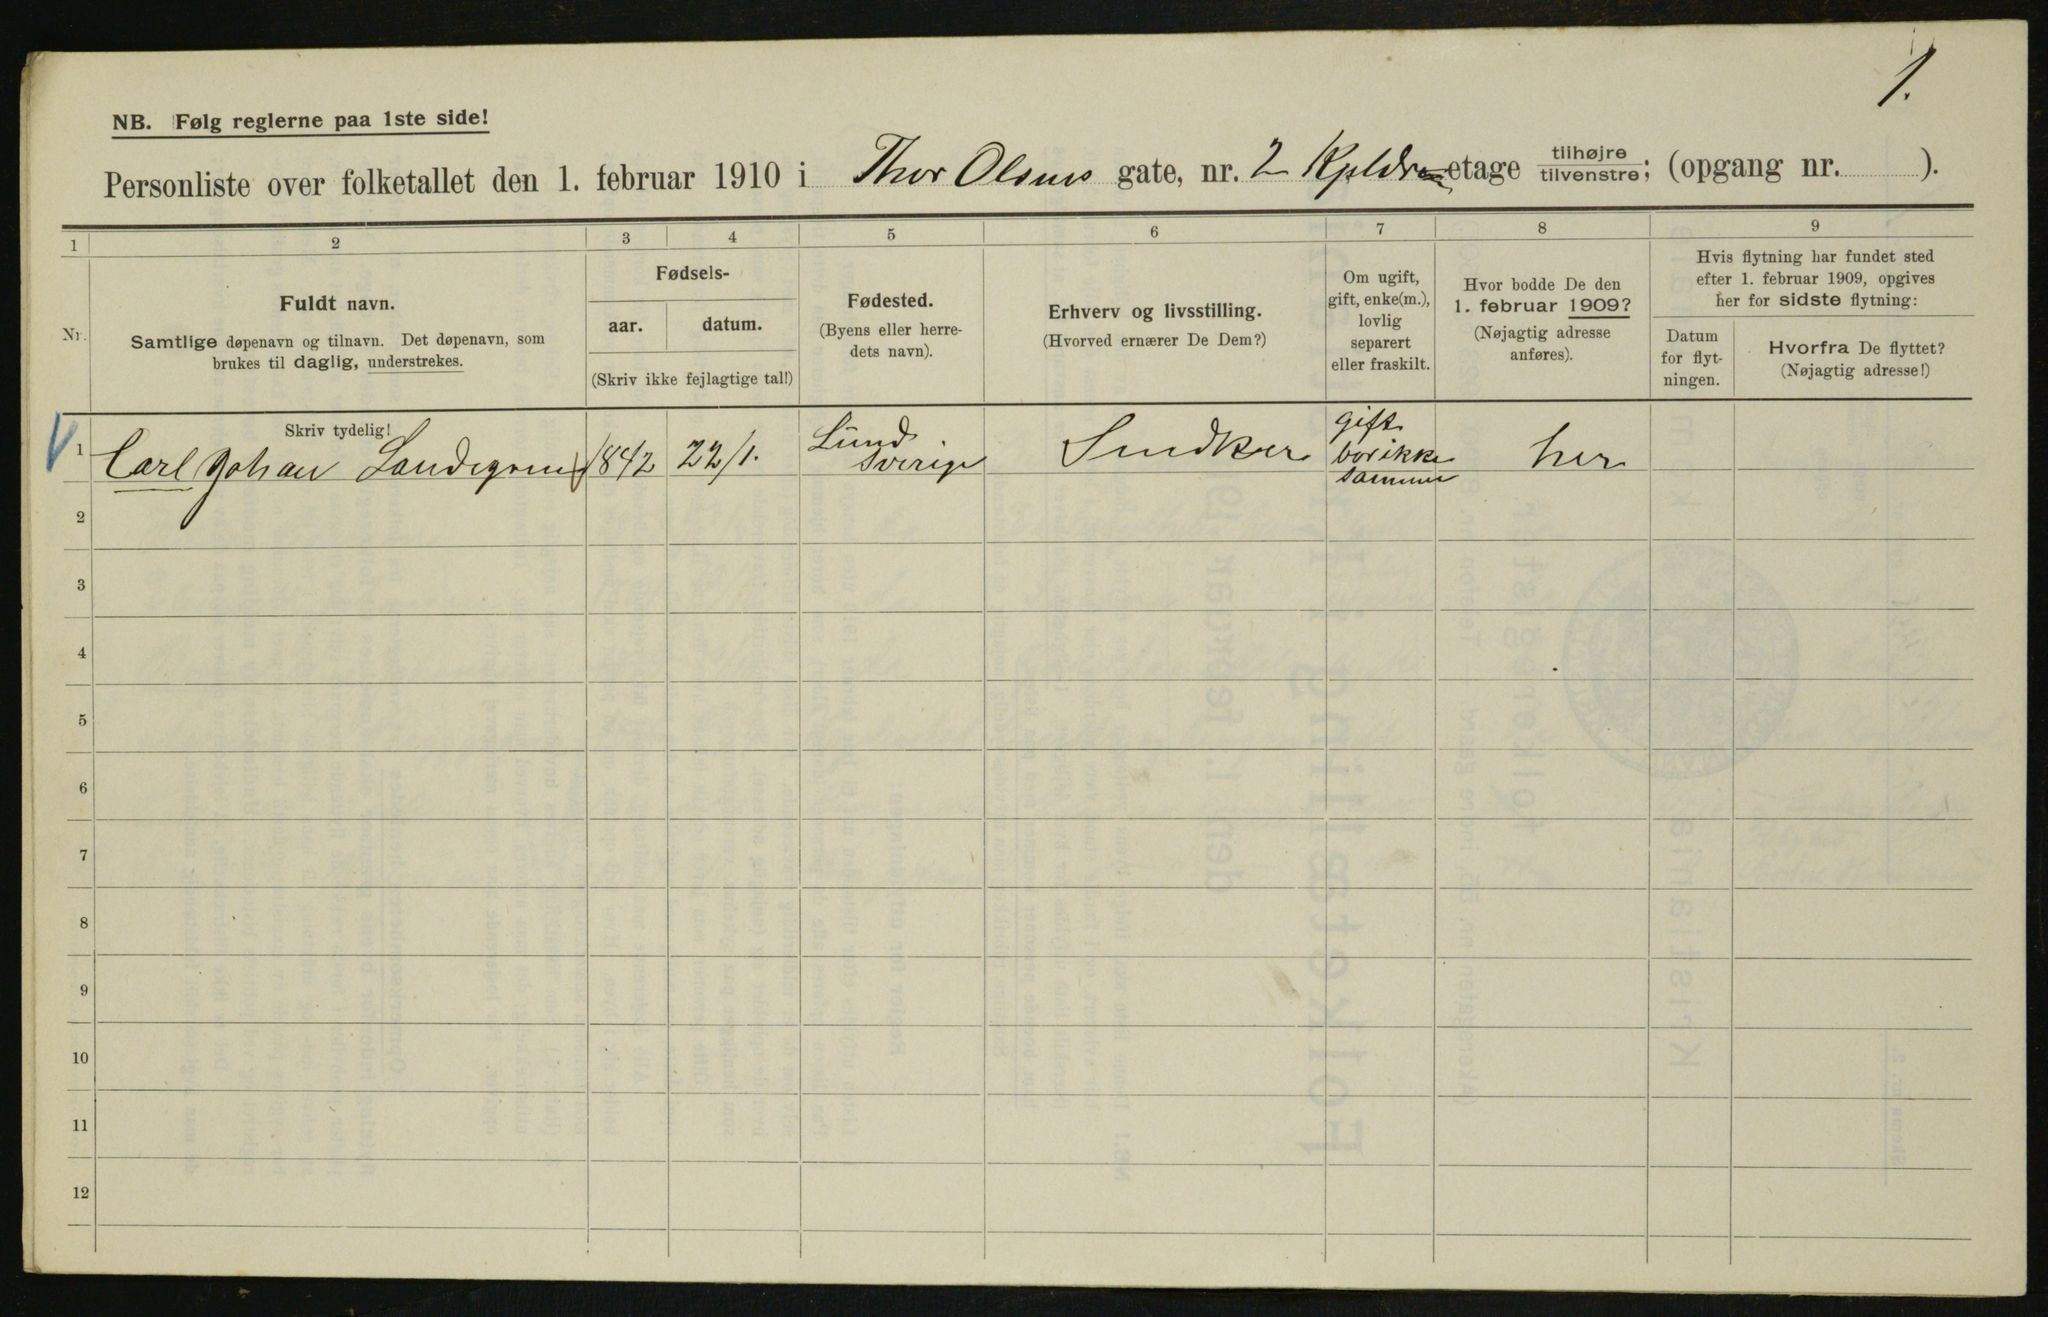 1.
NB. Følg reglerne paa 1ste side!
Personliste over folketallet den 1. februar 1910 i Thor Olsens gate, nr. 2 Kjelder etage tilhøjre tilvenstre; (opgang nr. ).
1 2 3 4 5 6 7 8 9
Nr.
Fuldt navn.
Samtlige døpenavn og tilnavn. Det døpenavn, som
brukes til daglig, understrekes.
Fødsels-
aar. datum.
(Skriv ikke fejlagtige tal!)
Fødested.
(Byens eller herre-
dets navn).
Erhverv og livsstilling.
(Hvorved ernærer De Dem?)
Om ugift,
gift, enke(m.),
lovlig
separert
eller fraskilt.
Hvor bodde De den
1. februar 1909?
(Nøjagtig adresse
anføres).
Hvis flytning har fundet sted
efter 1. februar 1909, opgives
her for sidste flytning:
Datum
for flyt-
ningen.
Hvorfra De flyttet?
(Nøjagtig adresse!)
Skriv tydelig!
1 Carl Johan 1842 22/1. Lund Sverige Snedker gift bor ikke sammen her
2
3
4
5
6
7
8
9
10
11
12